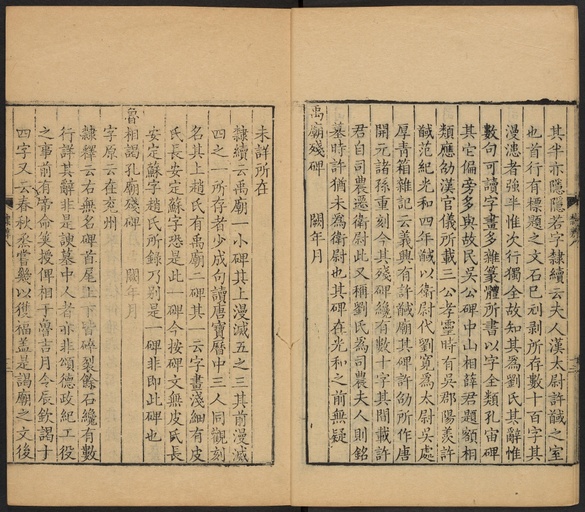 其半亦隱隱若字隸續云夫人漢太尉許馘之室
也首行有標題之文石已剥剥所存數十百字其
漫漶者強半惟次行獨全故知其為劉氏其辭惟
數句可讀字畫多雜篆體所書以字全類孔宙碑
其它偏旁多與故民吳公碑中山相薛君題額相
類應劭漢官儀所載三公孝靈時有吳郡陽羨許
馘范紀光和四年馘以衛尉代劉寬為太尉吳處
厚青箱雜記云義興有許馘廟其碑許劭所作唐
開元諸孫重刻今其殘碑纔有數十字其間載許
君自司農遷衛尉此又稱劉氏為司農夫人則銘
墓時許猶未為衛尉也其碑在光和之前無疑
禹廟殘碑 闕年月
未詳所在
隸續云禹廟一小碑其上漫滅五之三其前漫滅
四之一所存者少成句讀唐寶曆中三人同觀刻
名其上趙氏有禹廟二碑其一云字畫淺細有皮
氏長安定蘇字恐是此碑今按碑文無皮氏長
安定蘇字趙氏所錄乃別是一碑非即此碑也
魯相謁孔廟殘碑 闕年月
字原云在兗州
隸釋云右無名碑首尾上下皆碎裂餘石纔有數
行詳其辭非是諛墓中人者亦非頌德政紀工役
之事前有帝命筴授俾相于魯吉月令辰欽謁十
四字又云春秋烝嘗懸以獲福蓋是謁廟之文後